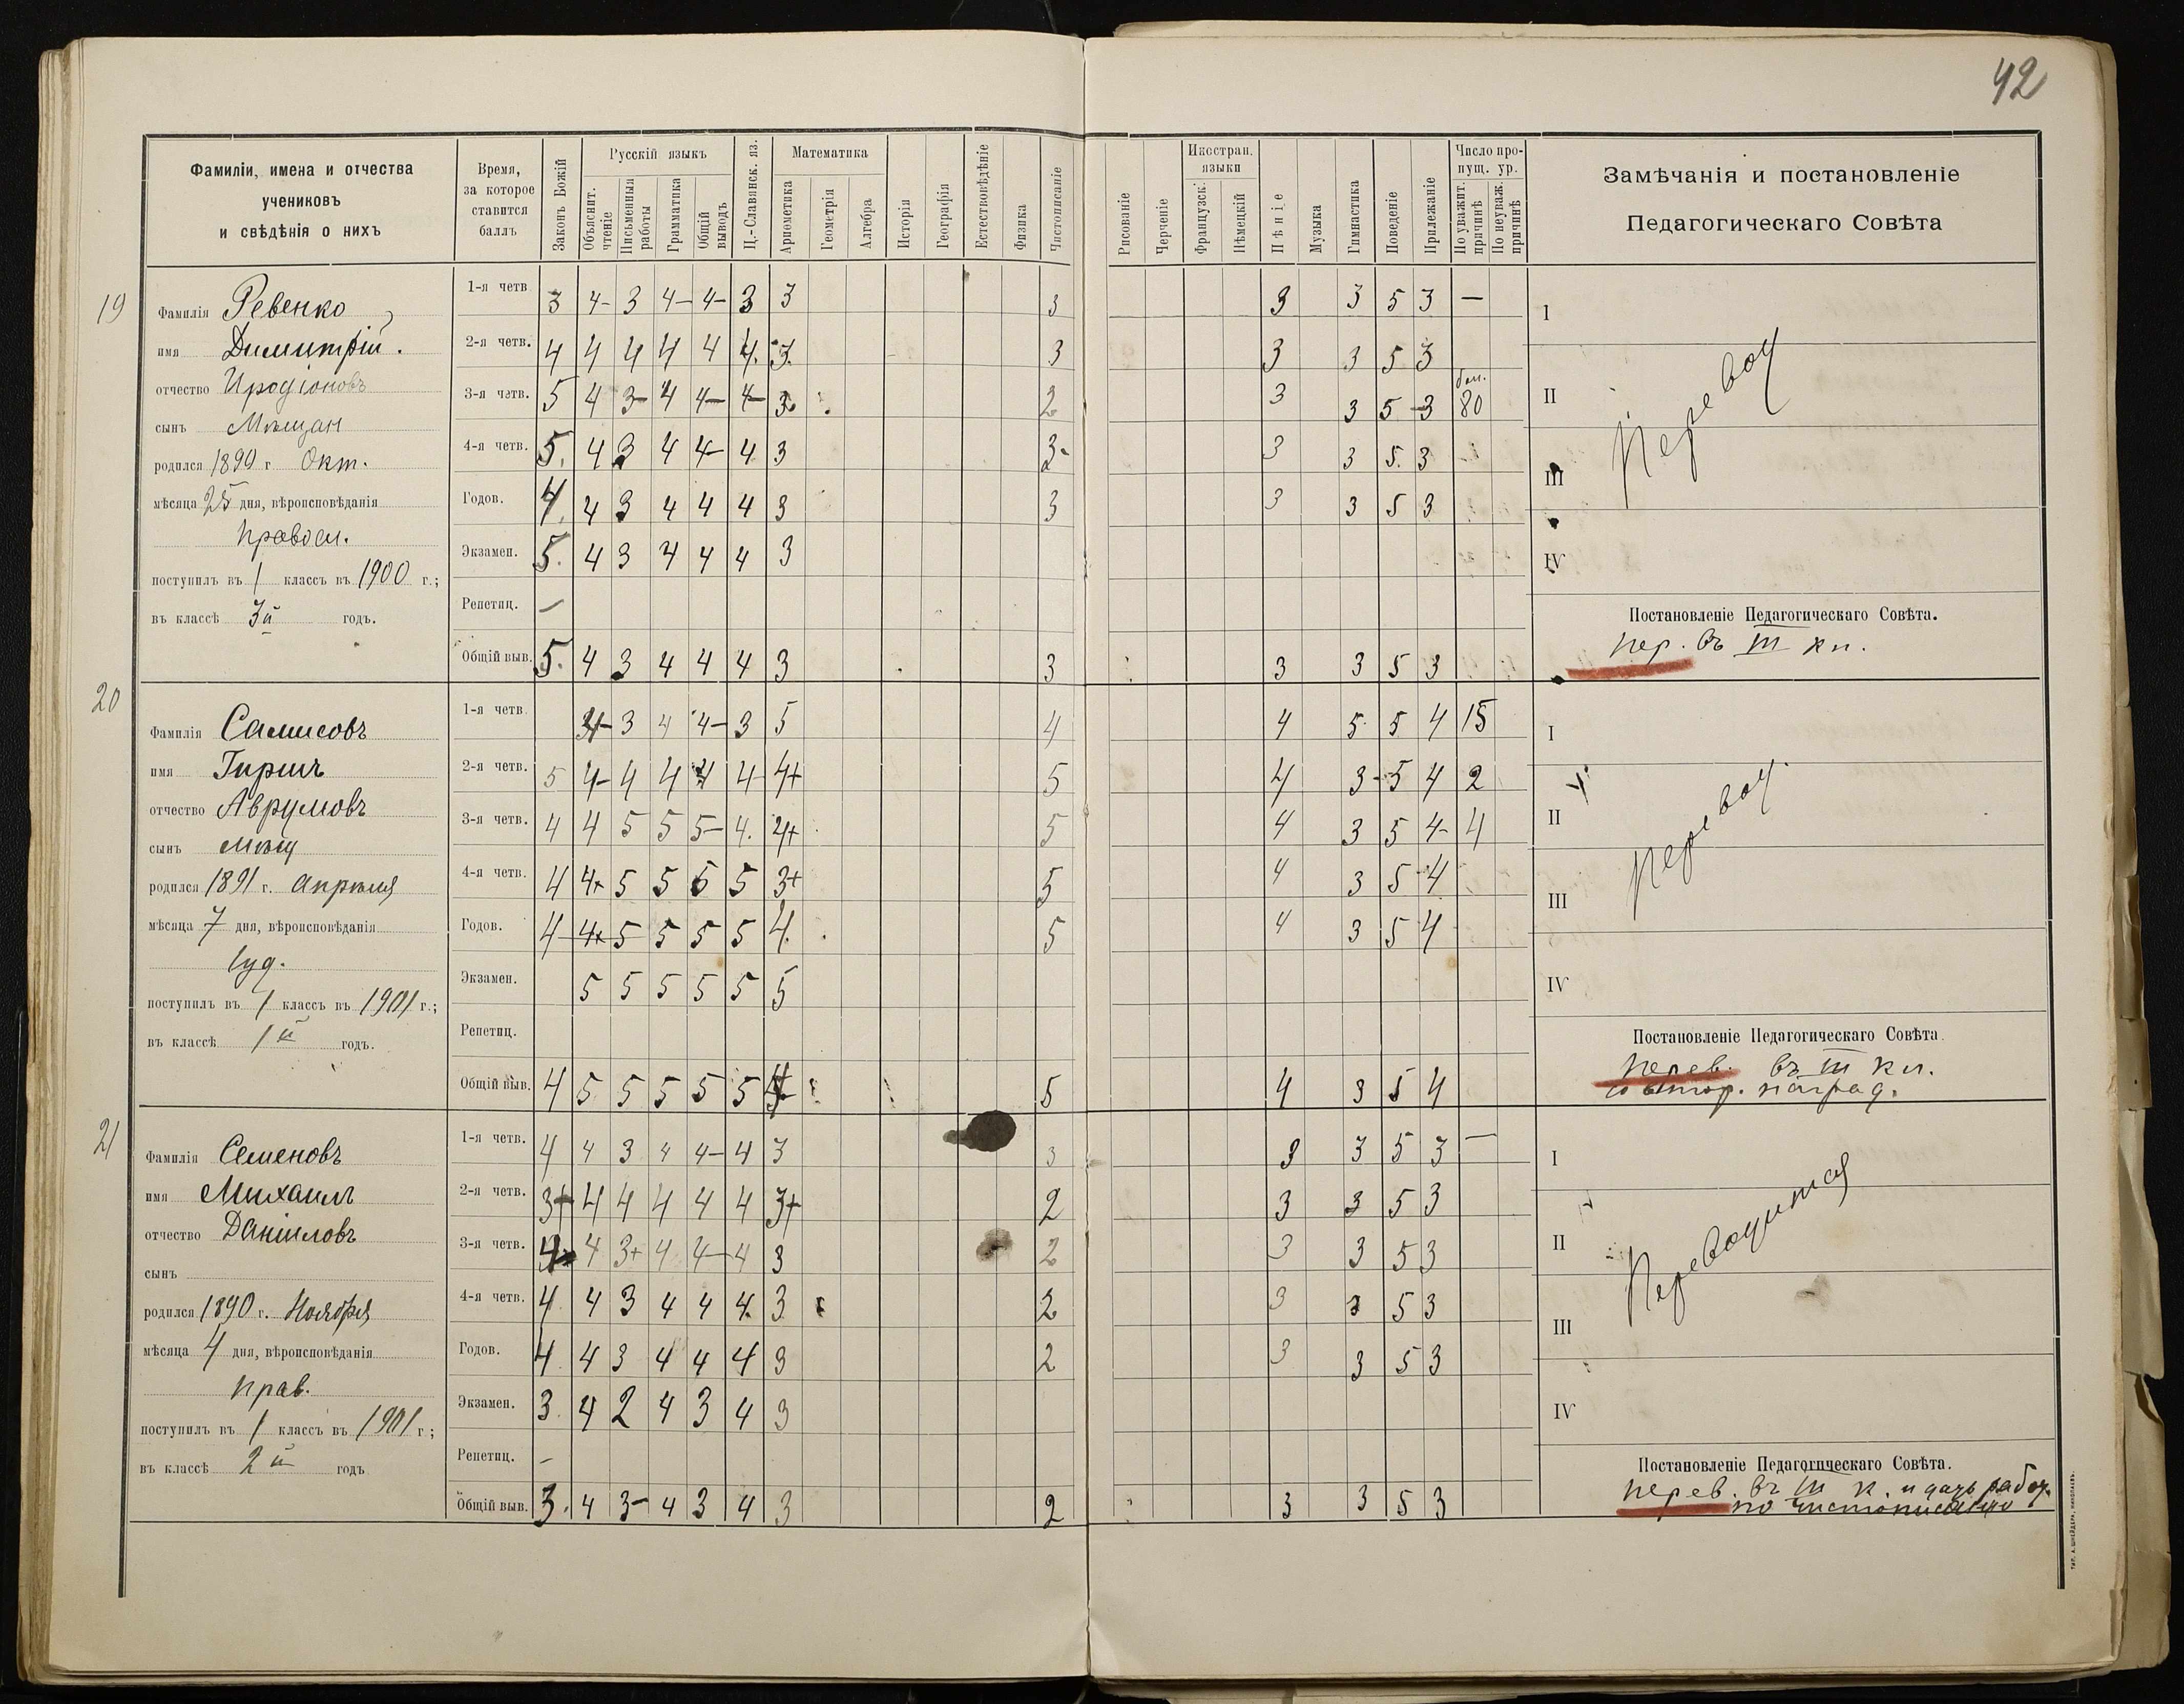 42
Фамиліи, имена и отчества
учениковъ
и свѣдѣнія о нихъ
Время,
за которое
ставится
баллъ
Законъ Божій
Русскій языкъ
Объяснит. чтеніе
Письменныя работы
Грамматика
Общій выводъ
Ц.-Славянск. яз.
Математика
Ариѳметика
Геометрія
Алгебра
Исторія
Географія
Естествовѣдѣніе
Физика
Чистописаніе
Рисованіе
Черченіе
Иностран. языки
Французскі
Нѣмецкій
Пѣніе
Музыка
Гимнастика
Поведеніе
Прилежаніе
Число пропущ. ур.
По уважит. причинѣ
По неуваж. причинѣ
Замѣчанія и постановленіе
Педагогическаго Совѣта
19
Фамилія Ревенко
имя Димитрій.
отчество Иродіоновъ
сынъ Мѣщан
родился 1890 г Окт.
мѣсяца 25 дня, вѣроисповѣданія
Правосл.
поступилъ въ 1 классъ въ 1900 г.;
въ классѣ 3й годъ.
1-я четв 3 4- 3 4- 4- 3 3 3 3 3 5 3 —
2-я четв. 4 4 4 4 4 4. 3. 3 3 3 5 3
3-я четв. 5 4 3- 4 4- 4- 3 2 3 3 5 3 бол. 80
4-я четв. 5. 4 3 4 4- 4 3 3- 3 3 5. 3
Годов. 4. 4 3 4 4 4 3 3 3 3 5 3
Экзамен. 5. 4 3 4 4 4 3
Репетиц. —
Общій выв. 5. 4 3 4 4 4 3 3 3 3 5 3
I
II
III
IV
Перевод
Постановленіе Педагогическаго Совѣта.
пер. въ III кл.
20
Фамилія Самисовъ
имя Гиршъ
отчество Аврумовъ
сынъ мѣщ
родился 1891 г. апрѣля
мѣсяца 7 дня, вѣроисповѣданія
Іуд.
поступилъ въ 1 классъ въ 1901 г.;
въ классѣ 1й годъ.
1-я четв 4- 3 4 4- 3 5 4 4 5 5 4 15
2-я четв. 5 4- 4 4 4 4 4+ 5 4 3- 5 4 2
3-я четв. 4 4 5 5 5- 4. 4+ 5 4 3 5 4- 4
4-я четв. 4 4+ 5 5 5 5 3+ 5 4 3 5 4
Годов. 4 4+ 5 5 5 5 4. 5 4 3 5 4
Экзамен. 5 5 5 5 5 5
Репетиц.
Общій выв. 4 5 5 5 5 5 4 5 4 3 5 4
I
II
III
IV
Перевод.
Постановленіе Педагогическаго Совѣта.
перев. въ III кл.
со втор. наград.
21
Фамилія Семеновъ
имя Михаилъ
отчество Даніиловъ
сынъ
родился 1890 г. Ноября
мѣсяца 4 дня, вѣроисповѣданія
прав.
поступилъ въ 1 классъ въ 1901 г;
въ классѣ 2й годъ
1-я четв. 4 4 3 4 4- 4 3 3 3 3 5 3 —
2-я четв. 3+ 4 4 4 4 4 3+ 2 3 3 5 3
3-я четв. 4 4 3+ 4 4- 4 3 2 3 3 5 3
4-я четв. 4. 4 3 4 4 4. 3 2 3 3 5 3
Годов. 4. 4 3 4 4 4 3 2 3 3 5 3
Экзамен. 3. 4 2 4 3 4 3
Репетиц. —
Общій выв. 3. 4 3- 4 3 4 3 2 3 3 5 3
I
II
III
IV
Переводится
Постановленіе Педагогическаго Совѣта.
перев. въ III к. и дать работ.
по чистописанію
ТИП. А. ШНЕЙДЕРА, НИКОЛАЕВЪ.